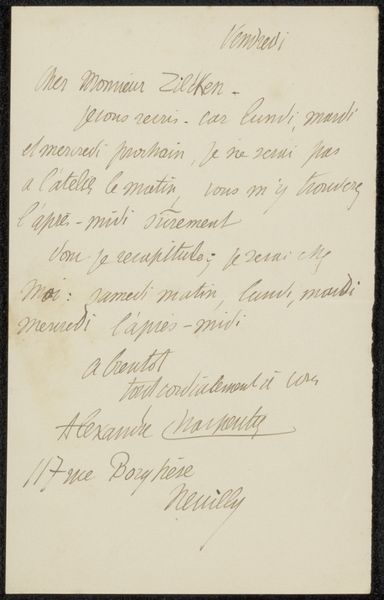 Vendredi
Cher Monsieur Zilcken -
Je vous écris - car lundi, mardi
et mercredi prochain, je ne serai pas
a l'atelier le matin, vous m'y trouverez
l'après-midi sûrement
Donc je recapitule; je serai chez
moi: samedi matin, lundi, mardi
mercredi l'après-midi
a bientot
tout cordialement à vous
Alexandre Charpentier
117 rue Borghèse
Neuilly